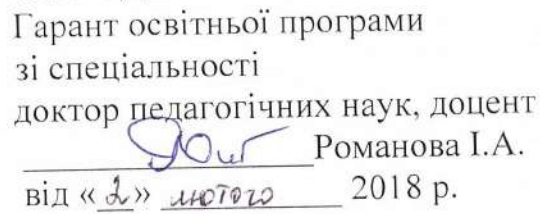 Гарант освітньої програми
зі спеціальності
доктор педагогічних наук, доцент
Романова І.А.
від «2» лютого 2018 р.